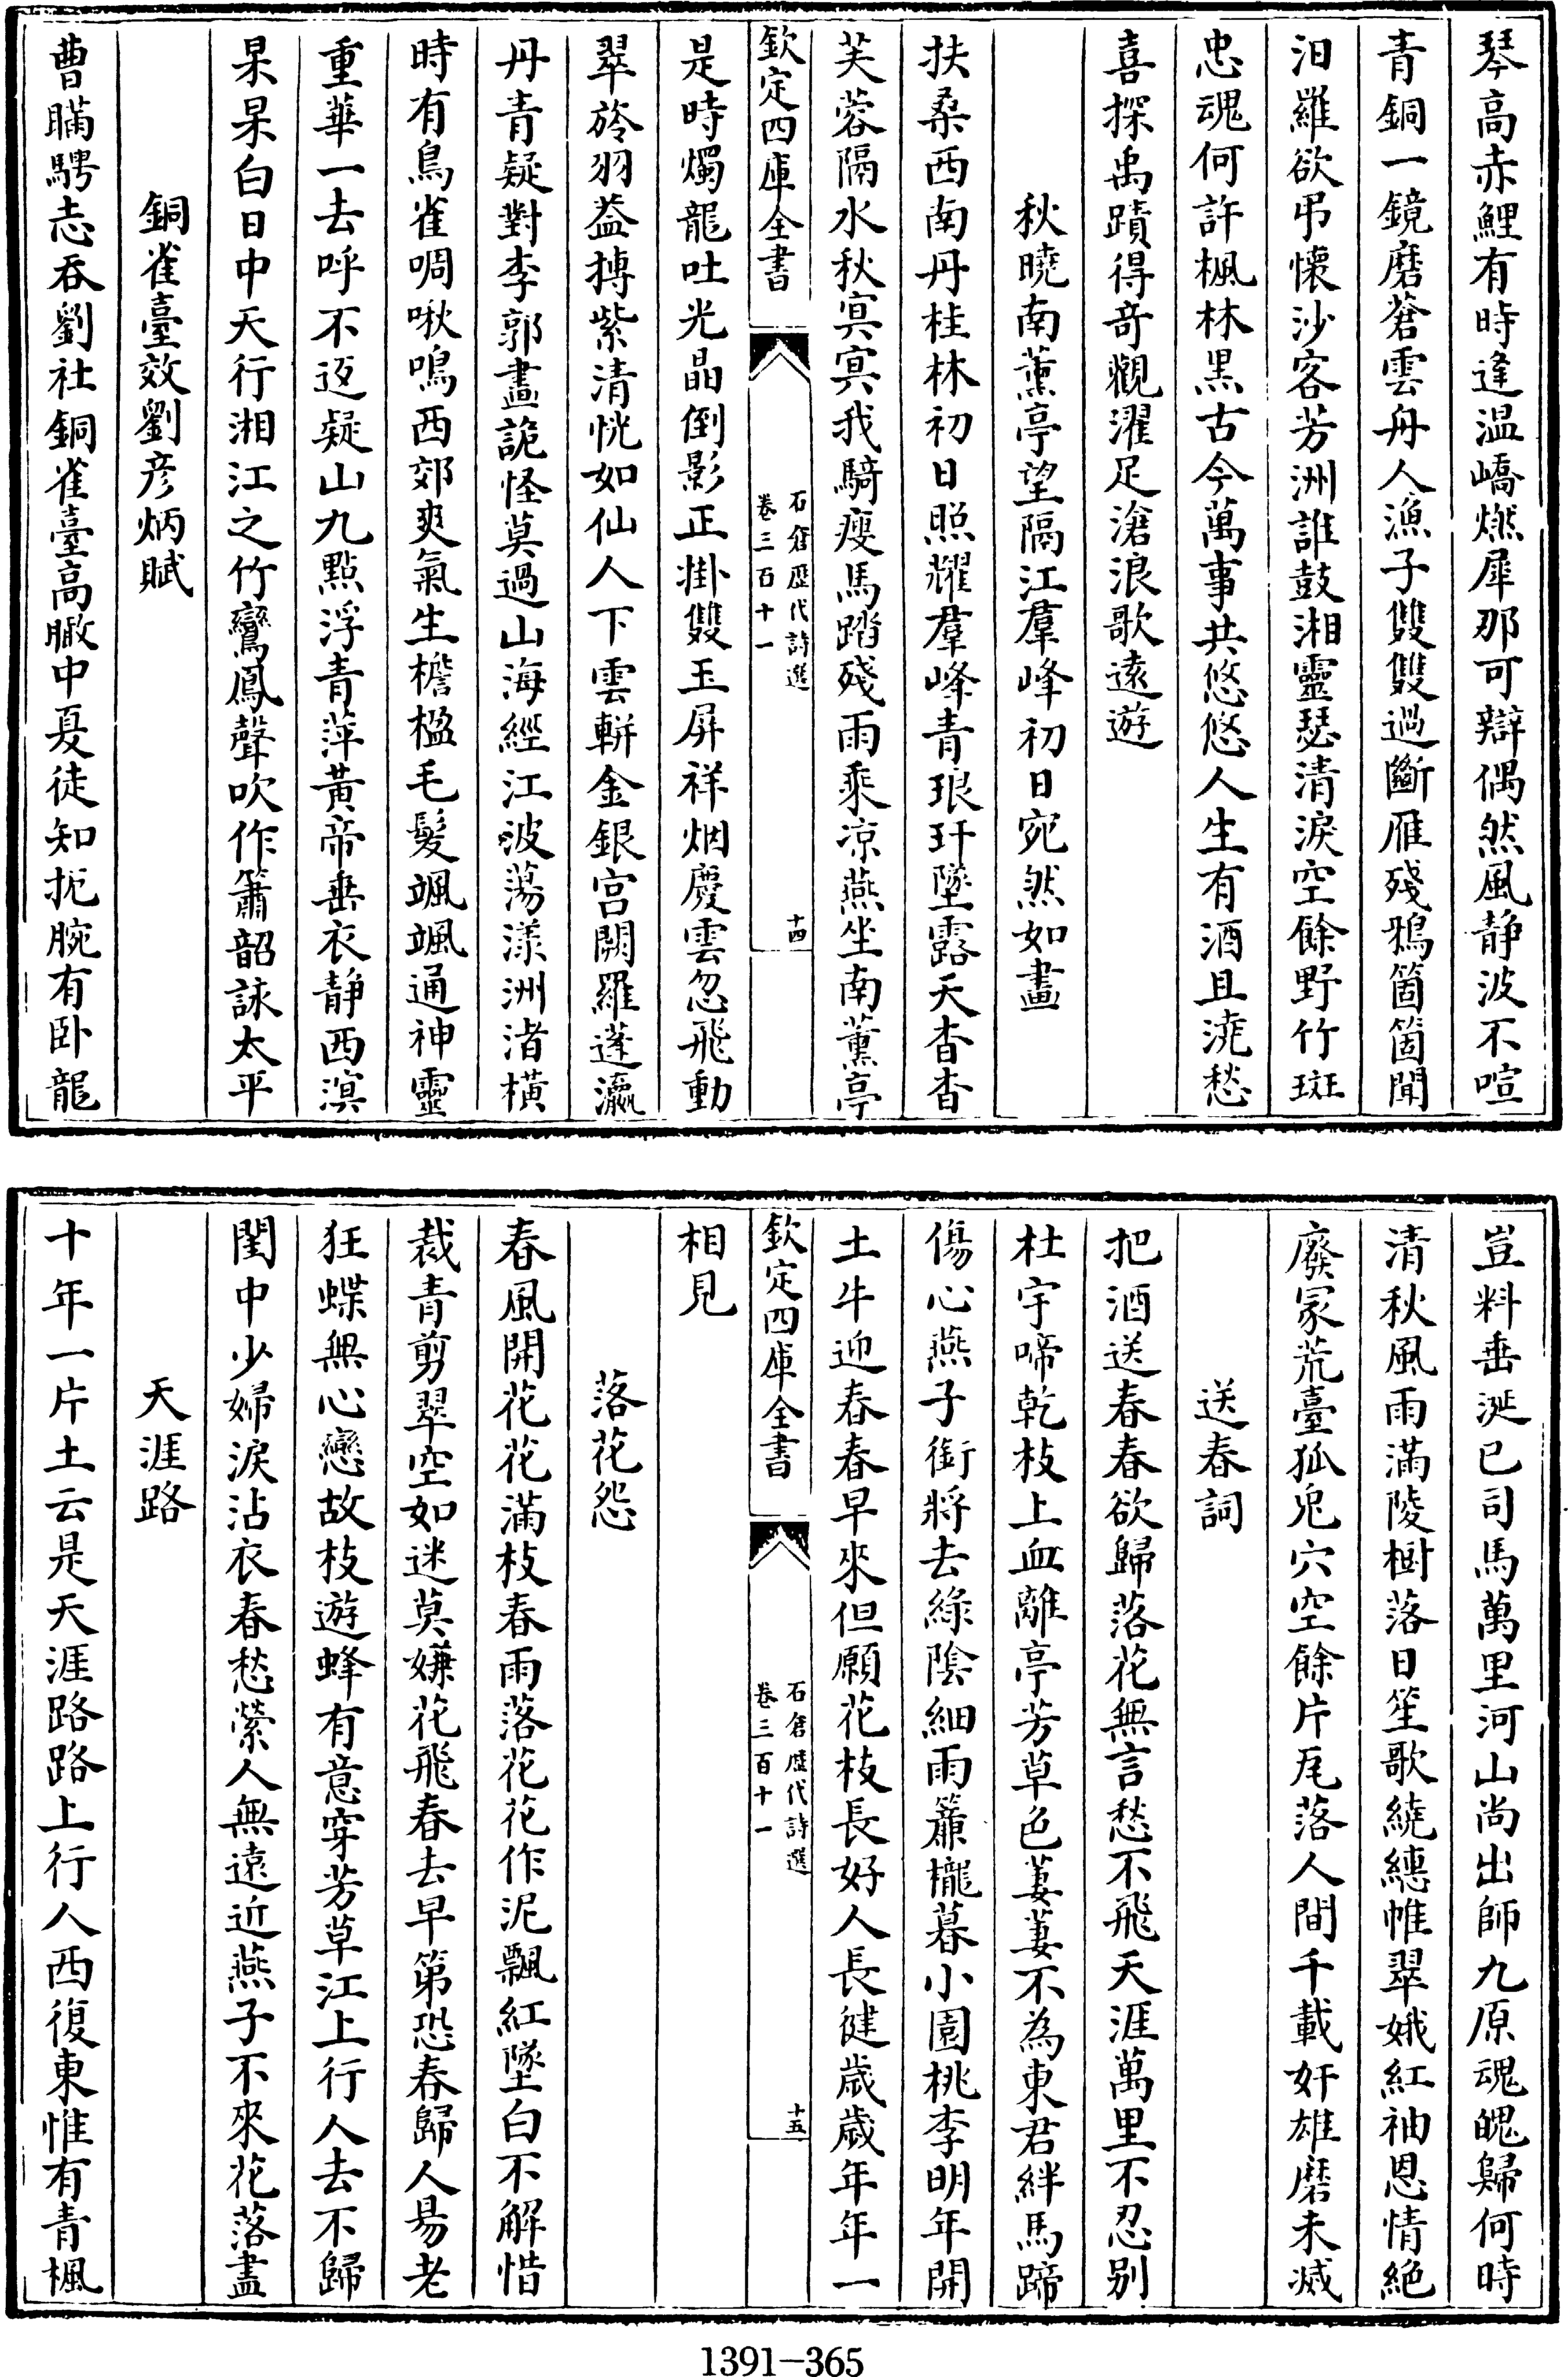 琴高赤鯉有時逢温嶠燃犀那可辯偶然風静波不喧
青銅一鏡磨蒼雲舟人漁子雙雙過斷雁殘鴉箇箇聞
汨羅欲弔懷沙客芳洲誰鼓湘靈瑟清淚空餘野竹斑
忠魂何許楓林黒古今萬事共悠悠人生有酒且澆愁
喜探禹蹟得奇觀濯足滄浪歌遠遊
秋曉南薫亭望隔江羣峰初日宛然如畫
扶桑西南丹桂林初日照耀羣峰青琅玕墜露天杳杳
芙蓉隔水秋㝠㝠我騎瘦馬踏殘雨乘凉燕坐南薫亭
欽定四庫全書
石倉歷代詩選
卷三百十一
十四
是時燭龍吐光晶倒影正掛雙玉屏祥烟慶雲忽飛動
翠旍羽葢摶紫清恍如仙人下雲輧金銀宫闕羅蓬瀛
丹青疑對李郭畫詭怪莫過山海經江波蕩漾洲渚横
時有鳥雀啁啾鳴西郊爽氣生檐楹毛髪颯颯通神靈
重華一去呼不返疑山九點浮青萍黄帝垂衣静西溟
杲杲白日中天行湘江之竹鸞鳳聲吹作簫韶詠太平
銅雀臺效劉彦炳賦
曹瞞騁志吞劉社銅雀臺高瞰中夏徒知扼腕有卧龍
豈料垂涎已司馬萬里河山尚出師九原魂魄歸何時
清秋風雨滿陵樹落日笙歌繞繐帷翠娥紅袖恩情絶
廢冢荒臺狐兎穴空餘片瓦落人間千載奸雄磨未滅
送春詞
把酒送春春欲歸落花無言愁不飛天涯萬里不忍别
杜宇啼乾枝上血離亭芳草色萋萋不為東君絆馬蹄
傷心燕子銜將去緑陰細雨簾櫳暮小園桃李明年開
土牛迎春春早來但願花枝長好人長健歳歳年年一
欽定四庫全書
石倉歷代詩選
卷三百十一
十五
相見
落花怨
春風開花花滿枝春雨落花花作泥飄紅墜白不解惜
裁青剪翠空如迷莫嫌花飛春去早第恐春歸人易老
狂蝶無心戀故枝遊蜂有意穿芳草江上行人去不歸
閨中少婦淚沾衣春愁縈人無遠近燕子不來花落盡
天涯路
十年一片土云是天涯路路上行人西復東惟有青楓
1391-365